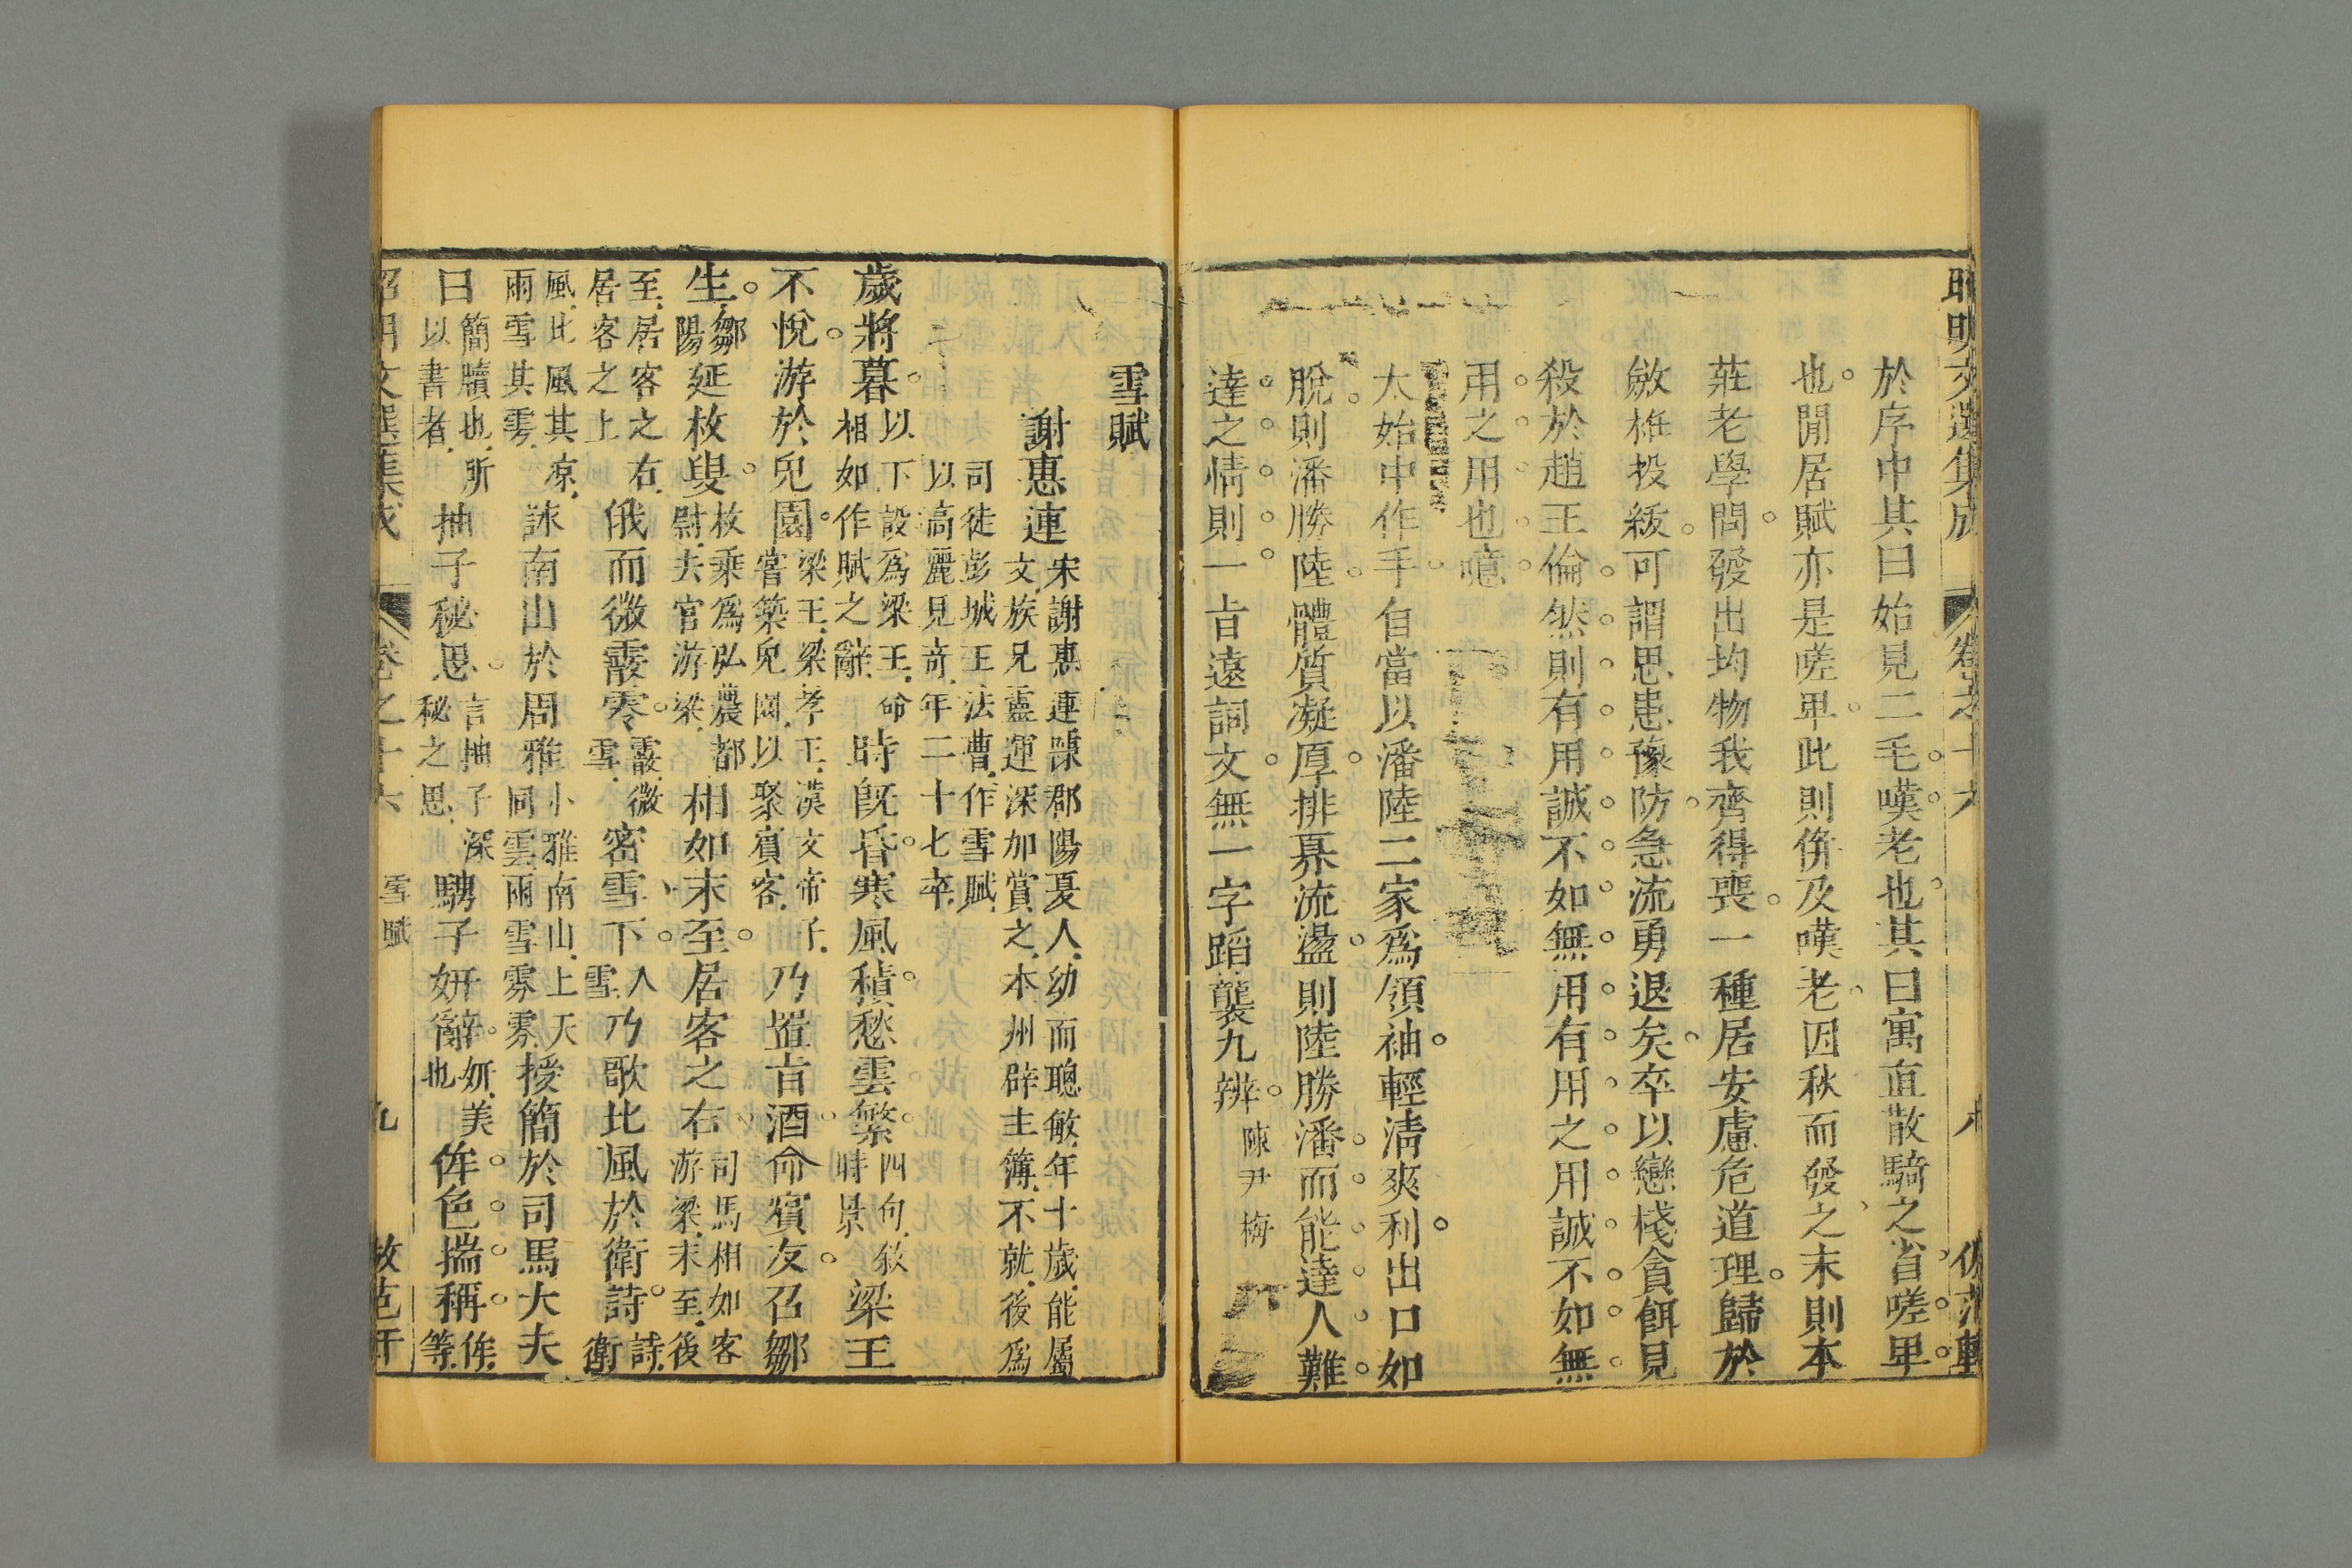 昭明文選集成 卷之十六 八
於序中其曰始見二毛嘆老也其曰寓直散騎之省嗟卑
也閒居賦亦是嗟卑此則倂及嘆老因秋而發之末則本
莊老學問發出均物我齊得喪一種居安慮危道理歸於
斂袵投紱可謂思患豫防急流勇退矣卒以戀棧貪餌見
殺於趙王倫然則有用誠不如無用有用之用誠不如無
用之用也噫
太始中作手自當以潘陸二家爲領袖輕淸爽利出口如
脫則潘勝陸體質凝厚排奡流盪則陸勝潘而能達人難
達之情則一㫖遠詞文無一字蹈襲九辨陳尹梅
雪賦
謝惠連宋謝惠連陳郡陽夏人幼而聰敏年十歲能屬
文族兄靈運深加賞之本州辟主簿不就後爲
司徒彭城王法曹作雪賦
以高麗見奇年二十七卒
歲將暮以下設爲梁王命相如作賦之辭時旣昏寒風積愁雲繁四句敘時景梁王
不悅游於兔園梁王梁孝王漢文帝子嘗築兔園以聚賓客乃置㫖酒命賓友召鄒
生鄒陽延枚叟枚乘爲弘農都尉去官游梁相如末至居客之右司馬相如客游梁末至後
至居客之右居客之上俄而微霰零霰微雪密雪下入雪乃歌北風於衛詩詩衛
風北風其凉雨雪其雱詠南山於周雅小雅南山上天同雲雨雪雰雰授簡於司馬大夫
曰簡牘也所以書者抽子秘思言抽子深秘之思騁子姸辭姸美也侔色揣稱侔等
昭明文選集成 卷之十六 雪賦 九